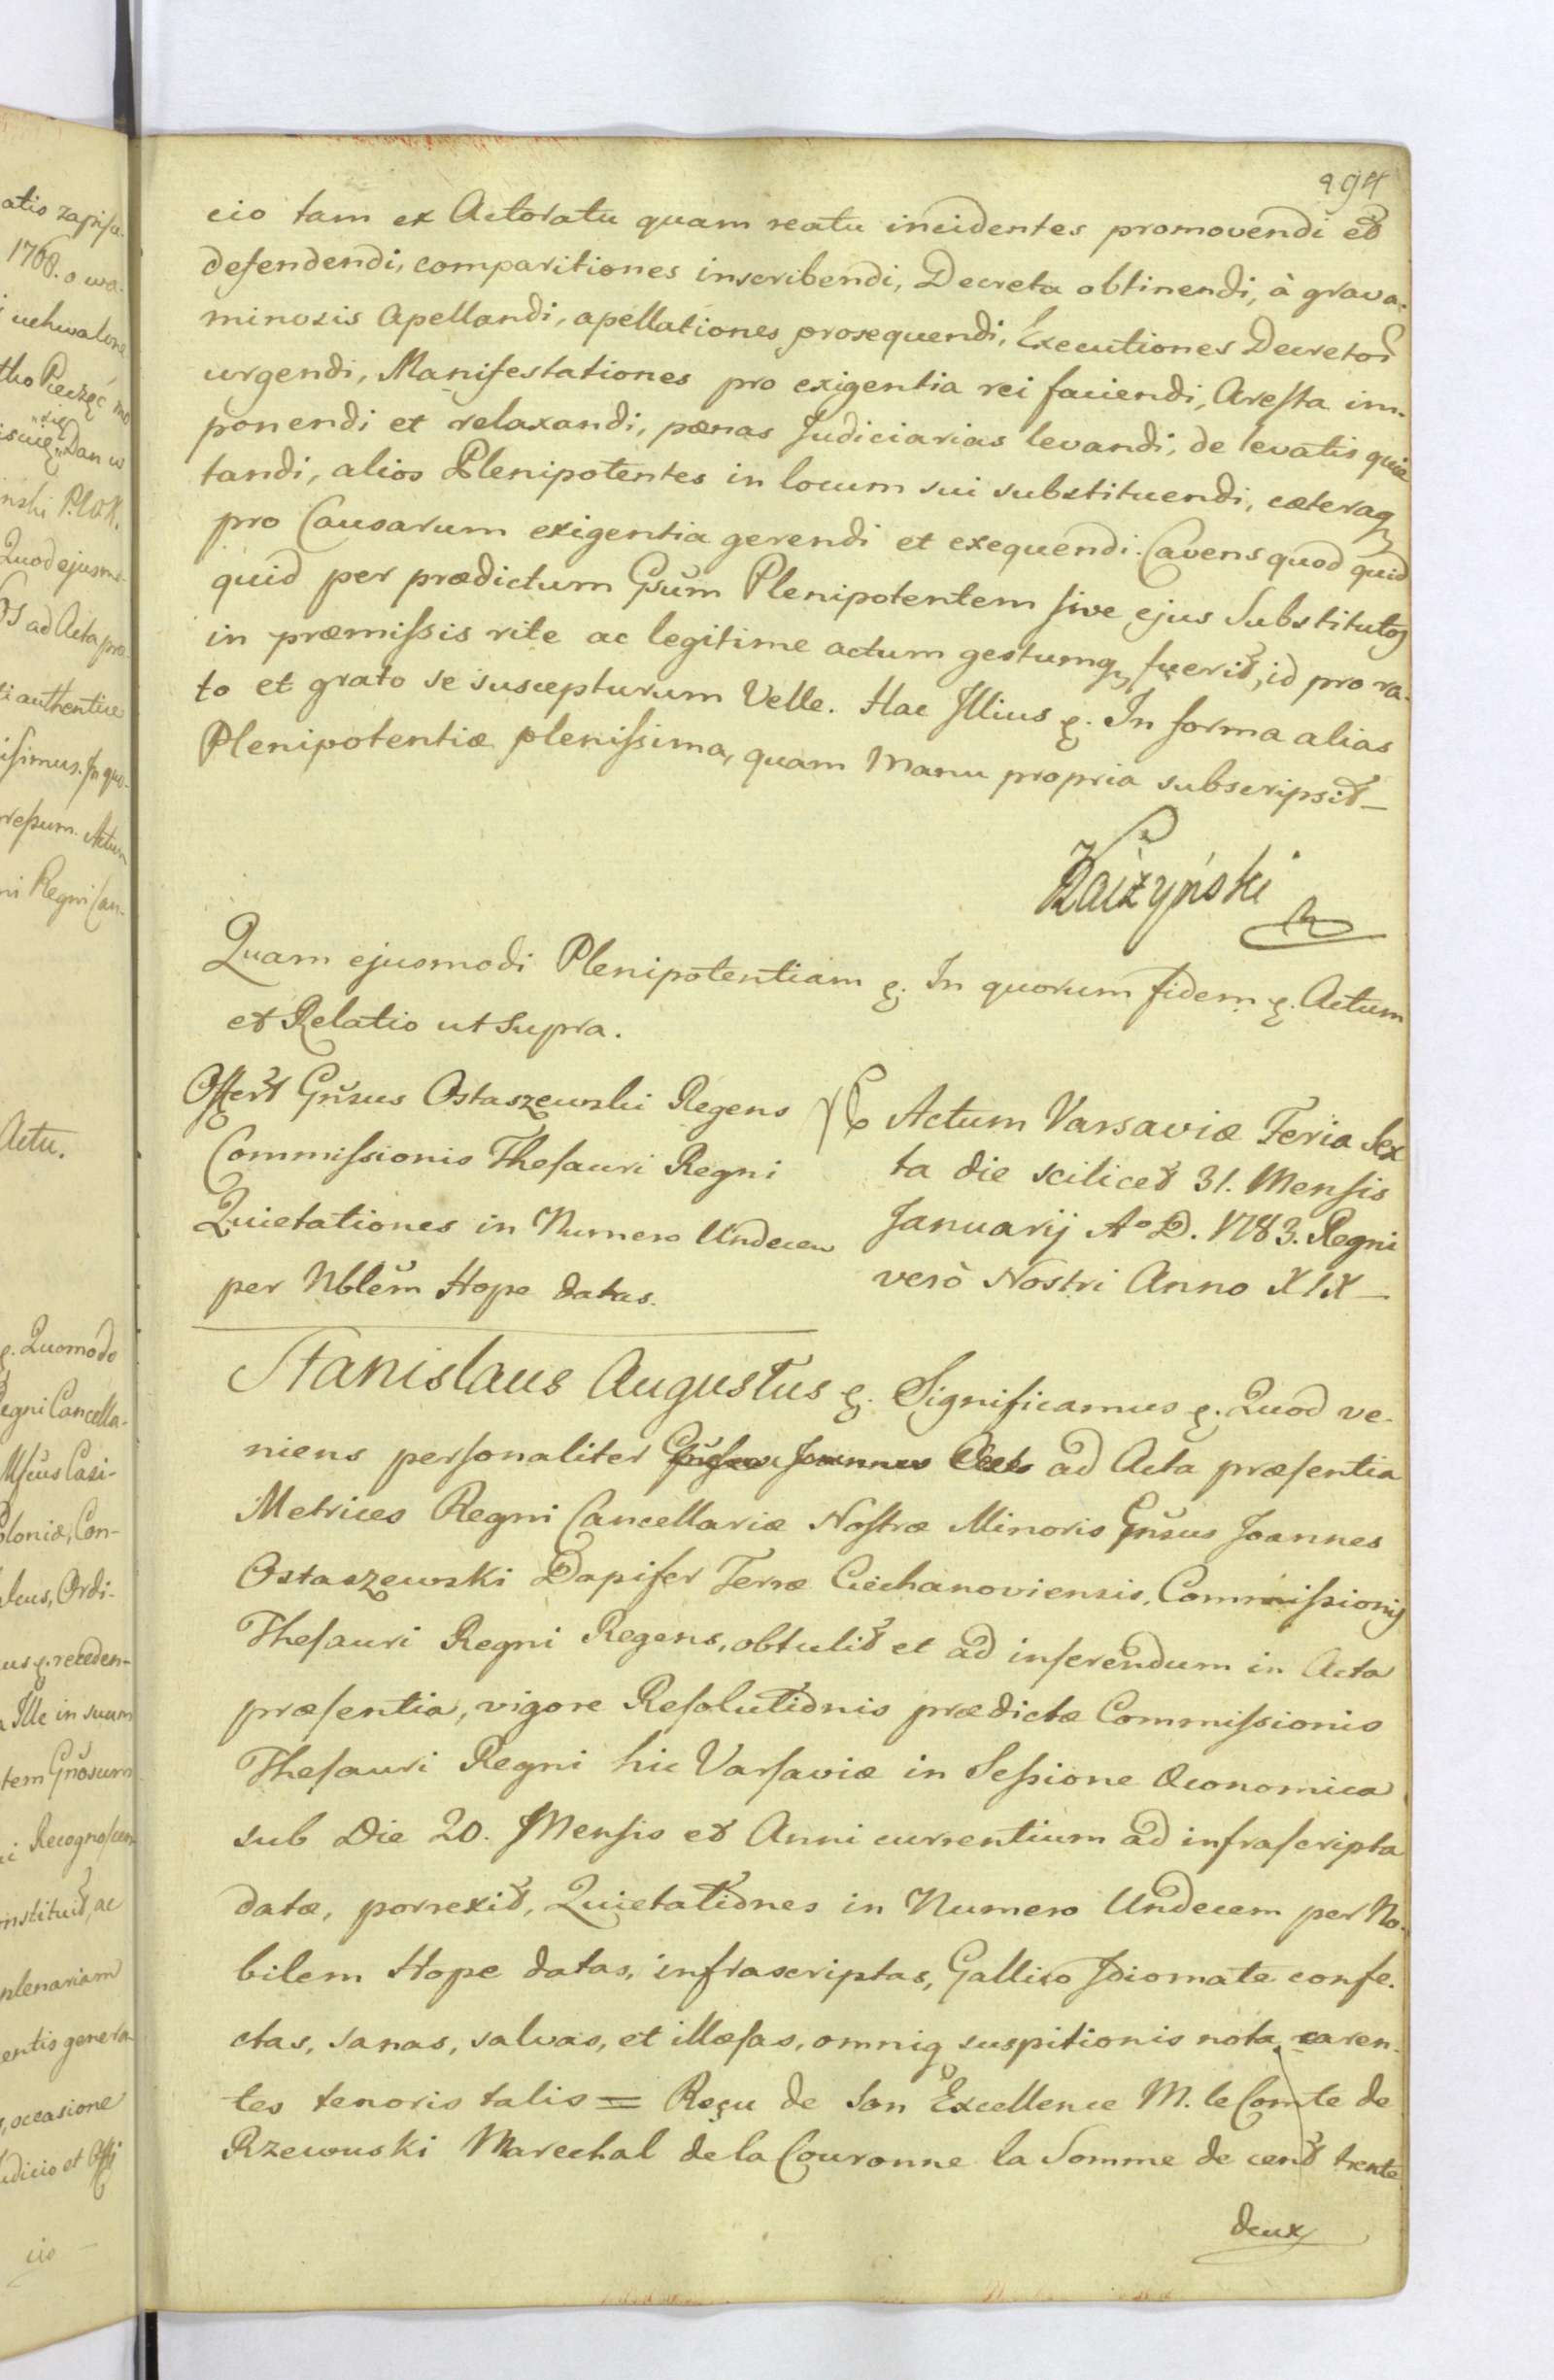 294
cio tam ex Actoratu quam reatu incidentes promovendi et
defendendi, comparitiones inscribendi, Decreta obtinendi, à grava-
minosis Apellandi, apellationes prosequendi, Executiones Decretor
urgendi, Manifestationes pro exigentia rei faciendi, Aresta im-
ponendi et relaxandi, pænas Judiciarias levandi, de levatis quie
tandi, alios Plenipotentes in locum sui substituendi, cæteraq
pro Causarum exigentia gerendi et exequendi. Cavens quod quid
quid per prædictum Gsum Plenipotentem sive ejus Substitutos
in præmissis rite ac legitime actum gestumq fuerit, id pro ra-
to et grato se suscepturum Velle. Hac Illius &. In forma alias
Plenipotentiæ plenissima, quam Manu propria subscripsit_
Quam ejusmodi Plenipotentiam &. In quorum fidem &. Actum
et Relatio ut Supra.
Offert Gnsus Ostaszewski Regens
Commissionis Thesauri Regni
Quietationes in Numero Undecem
per Nblem Hope datas.
Actum Varsaviæ Feria Sex
ta die scilicet 31. Mensis
Januarij Aº D. 1783. Regni
verò Nostri Anno XIX_
Stanislaus Augustus &. Significamus &. Quod ve-
niens personaliter ad Acta præsentia
Metrices Regni Cancellariæ Nostræ Minoris Gnsus Joannes
Ostaszewski Dapifer Terræ Ciechanoviensis, Commissionis
Thesauri Regni Regens, obtulit et ad inserendum in Acta
præsentia, vigore Resolutionis prædictæ Commissionis
Thesauri Regni hic Varsaviæ in Sessione Oeconomica
sub Die 20. Mensis et Anni currentium ad infrascripta
datæ, porrexit, Quietationes in Numero Undecem per No-
bilem Hope datas, infrascriptas, Gallico Idiomate confe-
ctas, sanas, salvas, et illæsas, omniq suspitionis nota caren-
tes tenoris talis = Reçu de Son Excellence M. le Comte de
Rzewuski Marechal de la Couronne la Somme de cent trente
deux
atis zapisu-
1768. o wa-
uchwalone
Pieczęć mo
się
Dan w
nski P.W.K.
Quod ejusmo-
ad Acta præ-
authentice
issimus. In quo-
ressum. Actum
ni Regni Can-
Actu.
&. Quomodo
Regni Cancella-
Casi-
Poloniæ, Con-
Ordi-
receden-
Ille in suum
tem Gnosum
Recognoscen
nstituit, ac
plenariam
entis genera
, occasione
udicio et Offi
cio